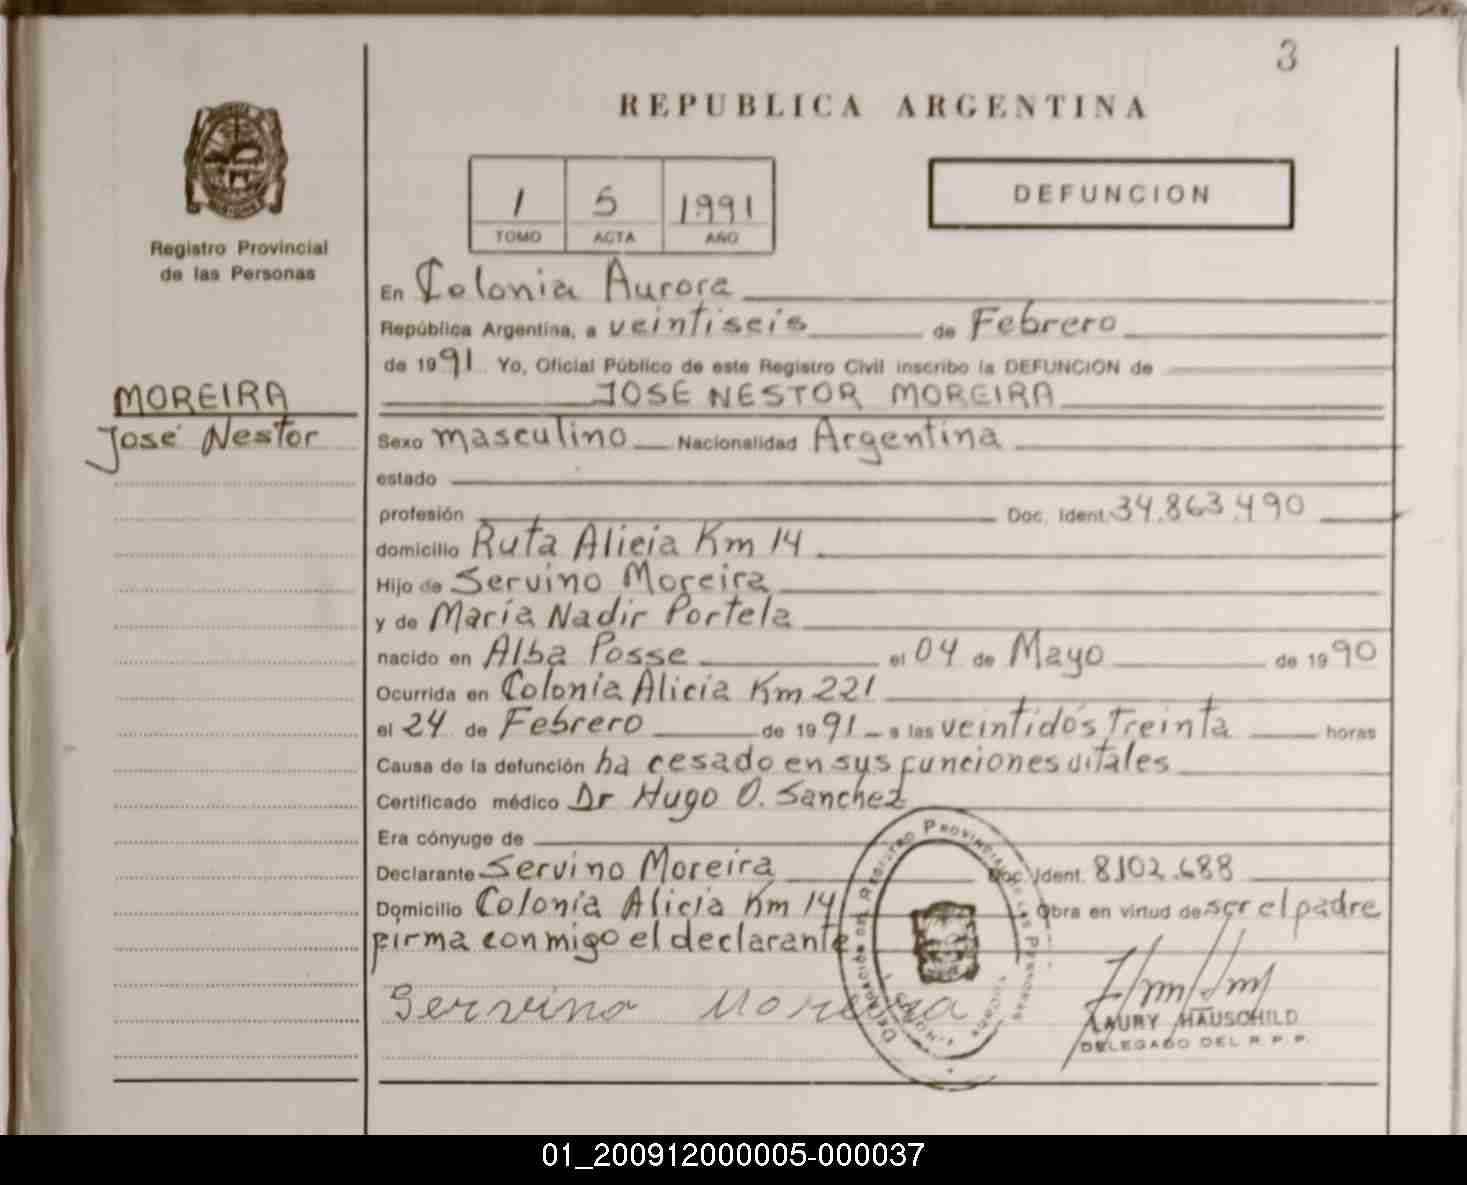 3
REPUBLICA ARGENTINA
1 5 1991
TOMO ACTA AÑO
DEFUNCION
Registro Provincial
de las Personas
En Colonia Aurora
República Argentina, a veintiseis de Febrero
de 1991 Yo, Oficial Público de este Registro Civil inscribo la DEFUNCION de
JOSE NESTOR MOREIRA
MOREIRA
José Nestor
Sexo masculino Nacionalidad Argentina
estado
profesión Doc. Ident. 34.863.490
domicilio Ruta Alicia Km 14
Hijo de Servino Moreira
y de María Nadir Portela
nacido en Alba Posse el 04 de Mayo de 1990
Ocurrida en Colonia Alicia Km 221
el 24 de Febrero de 1991 a las veintidós treinta horas
Causa de la defunción ha cesado en sus funciones vitales
Certificado médico Dr Hugo O. Sanchez
Era cónyuge de
Declarante Servino Moreira Doc. Ident. 8.102.688
Domicilio Colonia Alicia Km 14 Obra en virtud de ser el padre
firma conmigo el declarante
Servino Moreira
LAURY HAUSCHILD
DELEGADO DEL R. P. P.
DELEGACIÓN DEL REGISTRO PROVINCIAL DE LAS PERSONAS
MISIONES
01_200912000005-000037